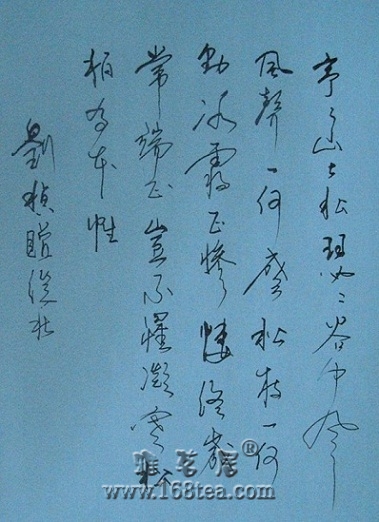 亭々山上松瑟々谷中風
風聲一何盛松枝一何
勁冰霜正慘悽終歲
常端正豈不罹凝寒松
柏有本性
劉楨贈從弟
雅茗居®
www.168tea.com